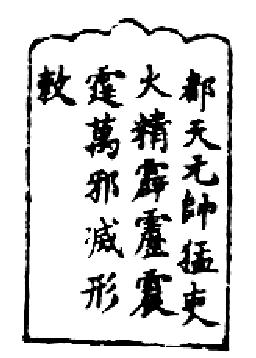 都天元帥猛吏
火精霹靂震
霆萬邪滅形
敕